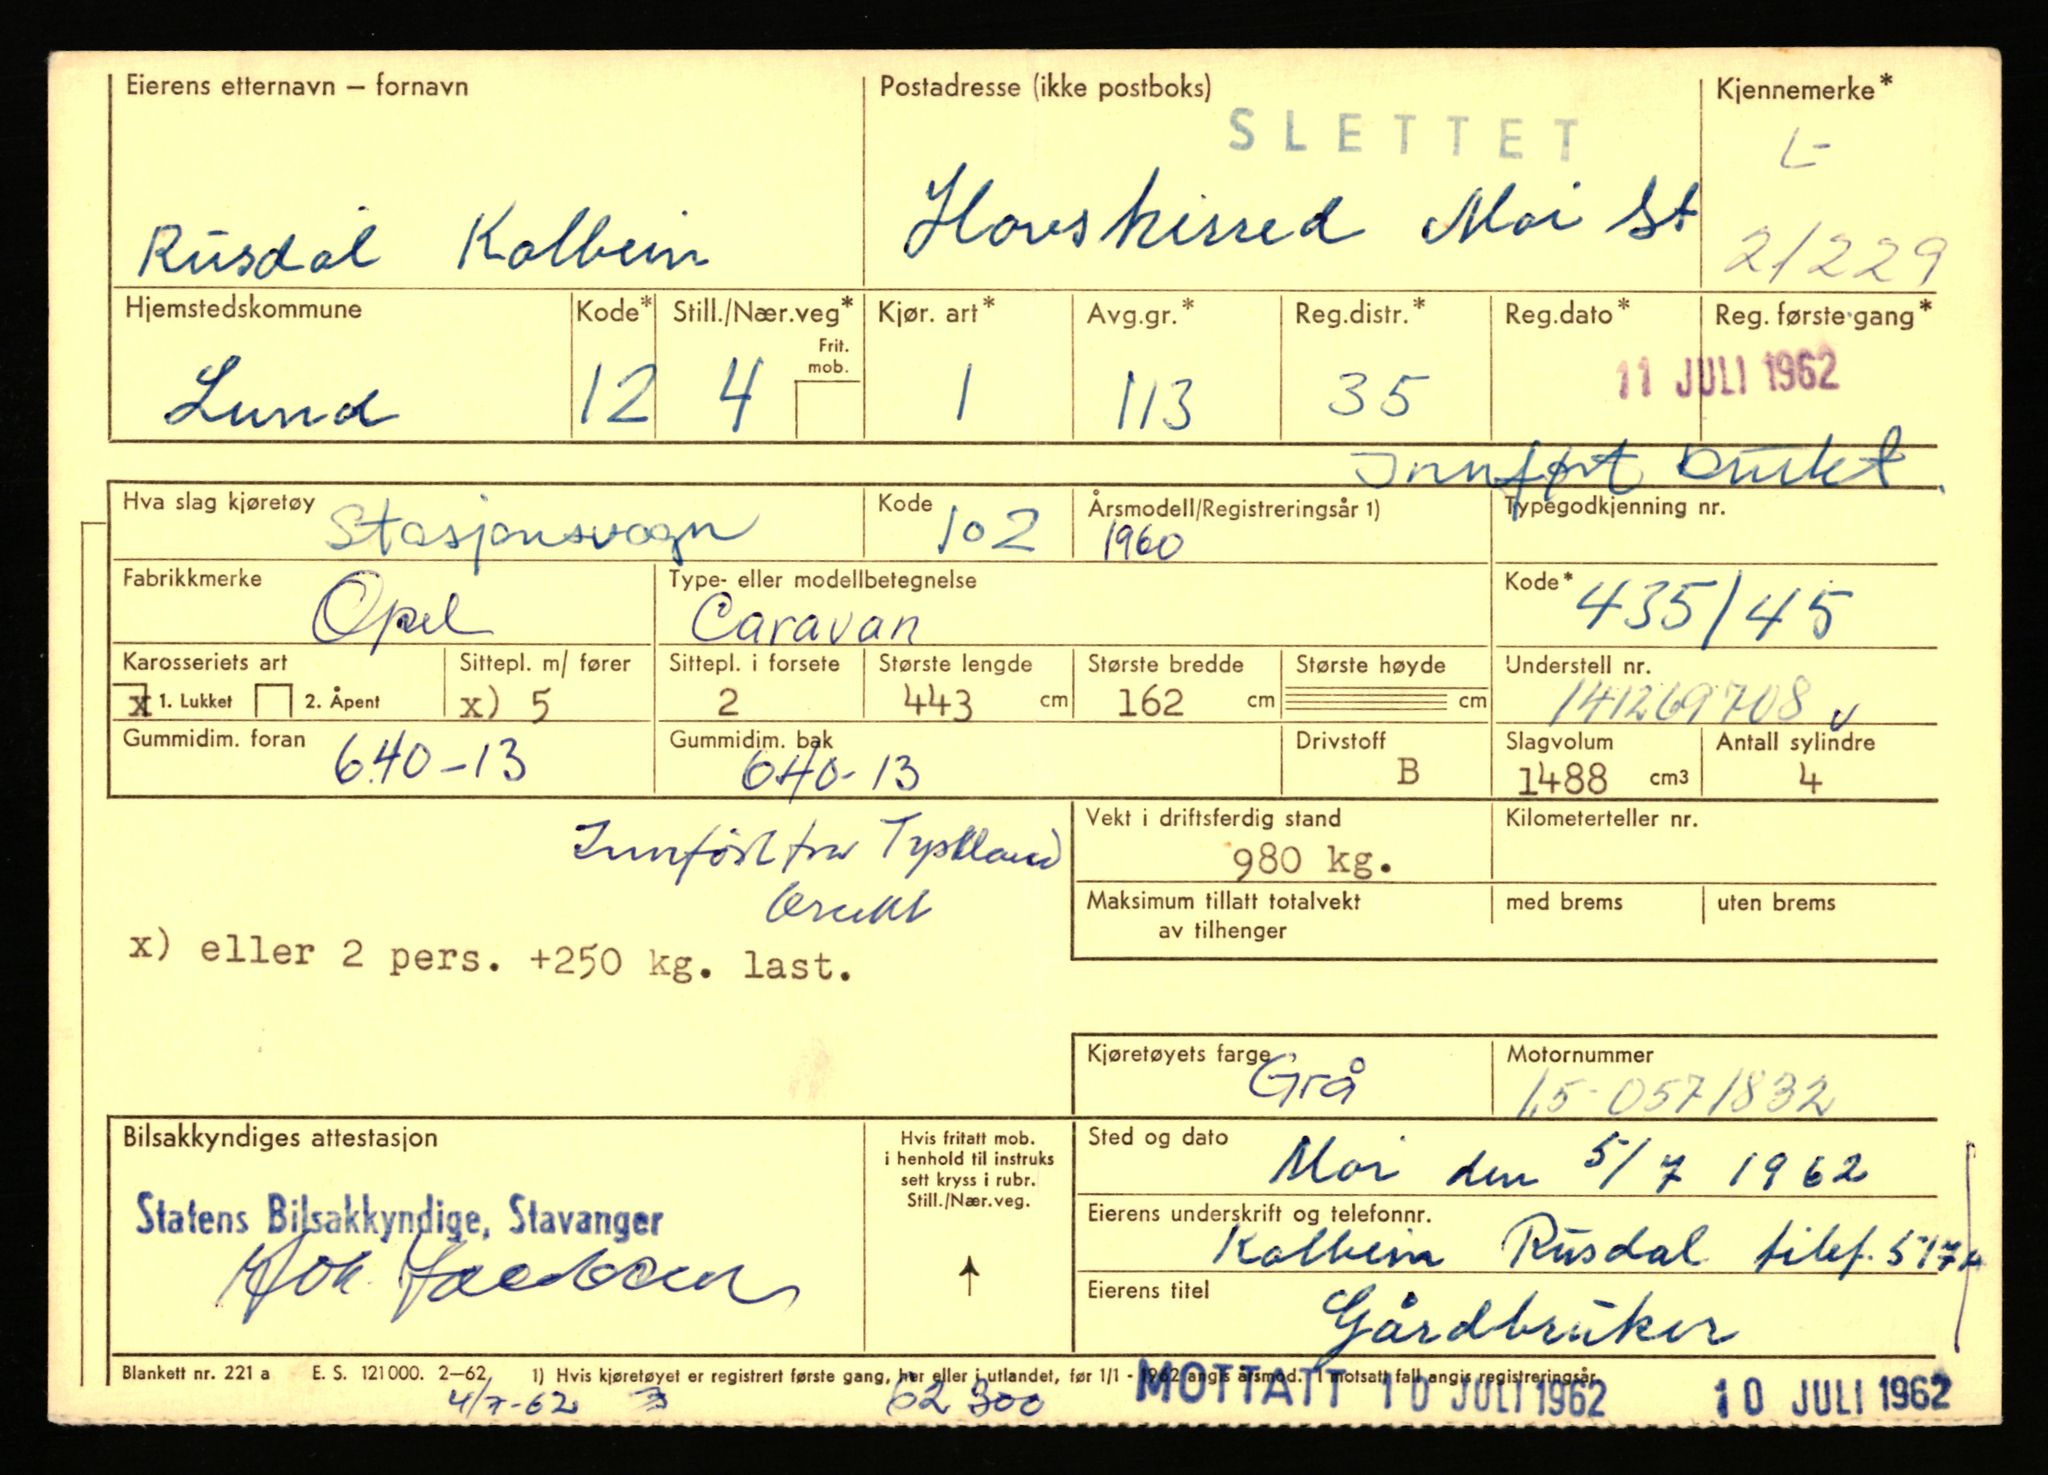 Eierens etternavn – fornavn Postadresse (ikke postboks) Kjennemerke*
SLETTET
L-
Rusdal Kolbein Hovskirred Moi St 21229
Hjemstedskommune Kode* Still./Nær.veg* Kjør. art* Avg.gr.* Reg.distr.* Reg.dato* Reg. første gang*
Frit. mob.
Lund 12 4 1 113 35 11 JULI 1962
Innført brukt.
Hva slag kjøretøy Stasjonsvogn Kode 102 Årsmodell/Registreringsår 1) 1960 Typegodkjenning nr.
Fabrikkmerke Opel Type- eller modellbetegnelse Caravan Kode* 435/45
Karosseriets art Sittepl. m/ fører Sittepl. i forsete Største lengde Største bredde Største høyde Understell nr.
x 1. Lukket 2. Åpent x) 5 2 443 cm 162 cm cm 141269708 v
Gummidim. foran Gummidim. bak Drivstoff Slagvolum Antall sylindre
640-13 640-13 B 1488 cm3 4
Vekt i driftsferdig stand Kilometerteller nr.
Innført fra Tyskland 980 kg.
brukt
Maksimum tillatt totalvekt med brems uten brems
av tilhenger
x) eller 2 pers. +250 kg. last.
Kjøretøyets farge Grå Motornummer
1,5-0571832
Bilsakkyndiges attestasjon
Hvis fritatt mob.
i henhold til instruks
sett kryss i rubr.
Still./Nær.veg.
Sted og dato
Moi den 5/7 1962
Statens Bilsakkyndige, Stavanger
Joh. Jacobsen
Eierens underskrift og telefonnr.
Kolbein Rusdal telef. 517
Eierens titel
Gårdbruker
Blankett nr. 221 a E. S. 121000. 2–62 1) Hvis kjøretøyet er registrert første gang, her eller i utlandet, før 1/1 - 1962 angis årsmod. I motsatt fall angis registreringsår.
4/7-62 3 62300 MOTTATT 10 JULI 1962 10 JULI 1962